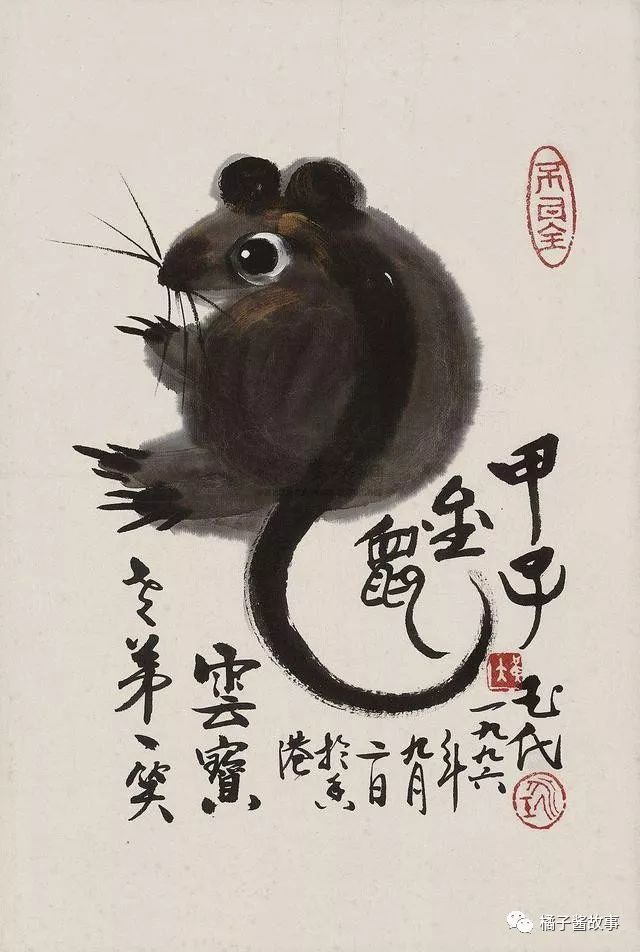 甲子
金鼠
一九九六
年
九月
二日
於香
港
雲寶
老弟一笑
橘子酱故事